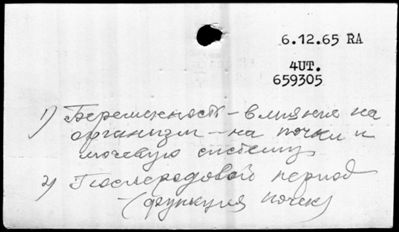 6.12.65 RA
4UT.
659305
1) Беременность – влияние на
организм – на почки и
мочевую систему
2) Послеродовой период
– (функция почек)